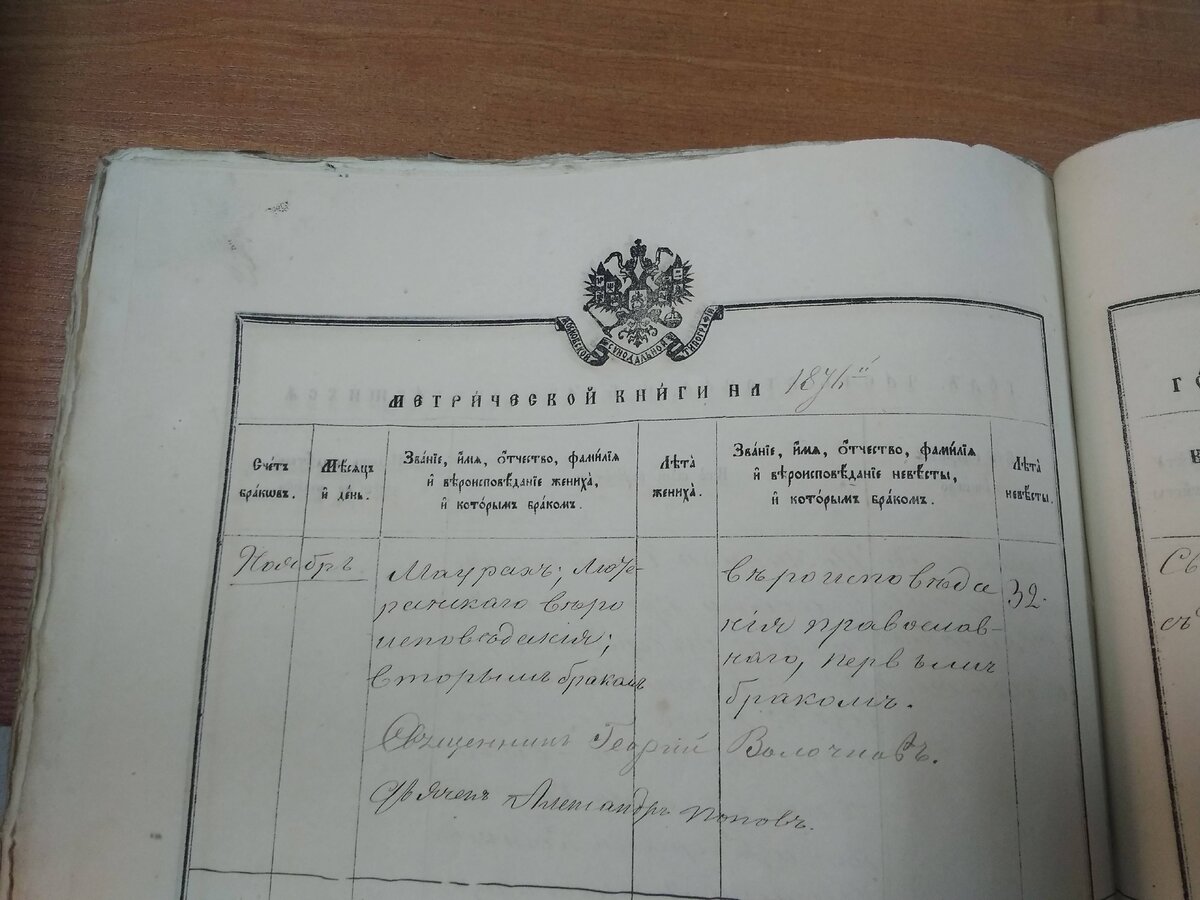 МОСКОВСКОЙ СѴНОДАЛЬНОЙ ТИПОГРАФІИ
МЕТРИ́ЧЕСКОЙ КНИ́ГИ НА
Сче́тъ бра́кѡвъ.
Мѣ́сяцъ и҆ де́нь.
Зва́нїе, и҆́мя, ѻ҆́тчество, фами́лїя
и҆ вѣроисповѣ́данїе жениха̀,
и҆ кото́рымъ бра́комъ.
Лѣ́та жениха̀.
Зва́нїе, и҆́мя, ѻ҆́тчество, фами́лїя
и҆ вѣроисповѣ́данїе невѣ́сты,
и҆ кото́рымъ бра́комъ.
Лѣ́та невѣ́сты.
Ноябрь
Маурахъ; Люте-
ранскаго вѣро
исповѣданія;
вторымъ бракомъ
вѣроисповѣда
нія православ-
наго, первымъ
бракомъ.
32.
Священникъ Георгій Волочковъ.
Дьяченъ Александръ Поповъ.
ГО
Св
съ